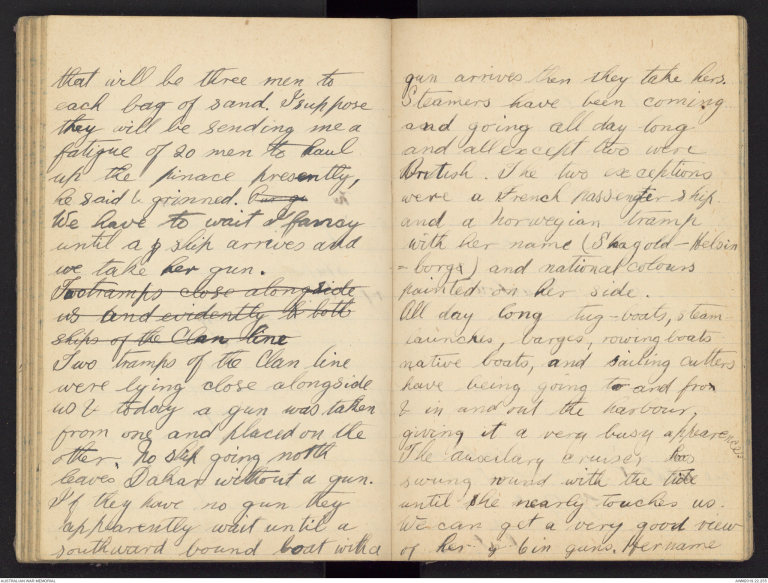 that will be three men to
each bag of sand. I suppose
they will be sending me a
fatigue of 20 men to haul
up the pinace presently,
he said & grinned.
We have to wait I fancy
until a ship arrives and
we take her gun.
Two tramps close alongside
us and evidently both
ships of the Clan line
Two tramps of the Clan line
were lying close alongside
us & today a gun was taken
from one and placed on the
other. No ship going north
leaves Dakar without a gun.
If they have no gun they
apparently wait until a
southward bound boat with a
gun arrives then they take hers.
Steamers have been coming
and going all day long
and all except two were
British. The two exceptions
were a French passenger ship
and a Norwegian tramp
with her name (Skagold - Helsin
- borg) and national colours
painted on her side.
All day long tug-boats, steam-
launches, barges, rowing boats
native boats, and sailing cutters
have being going to and fro
& in and out the harbour,
giving it a very busy appearences
The auxilary cruiser has
swung round with the tide
until she nearly touches us.
We can get a very good view
of her 6 in guns. Her name
AUSTRALIAN WAR MEMORIAL